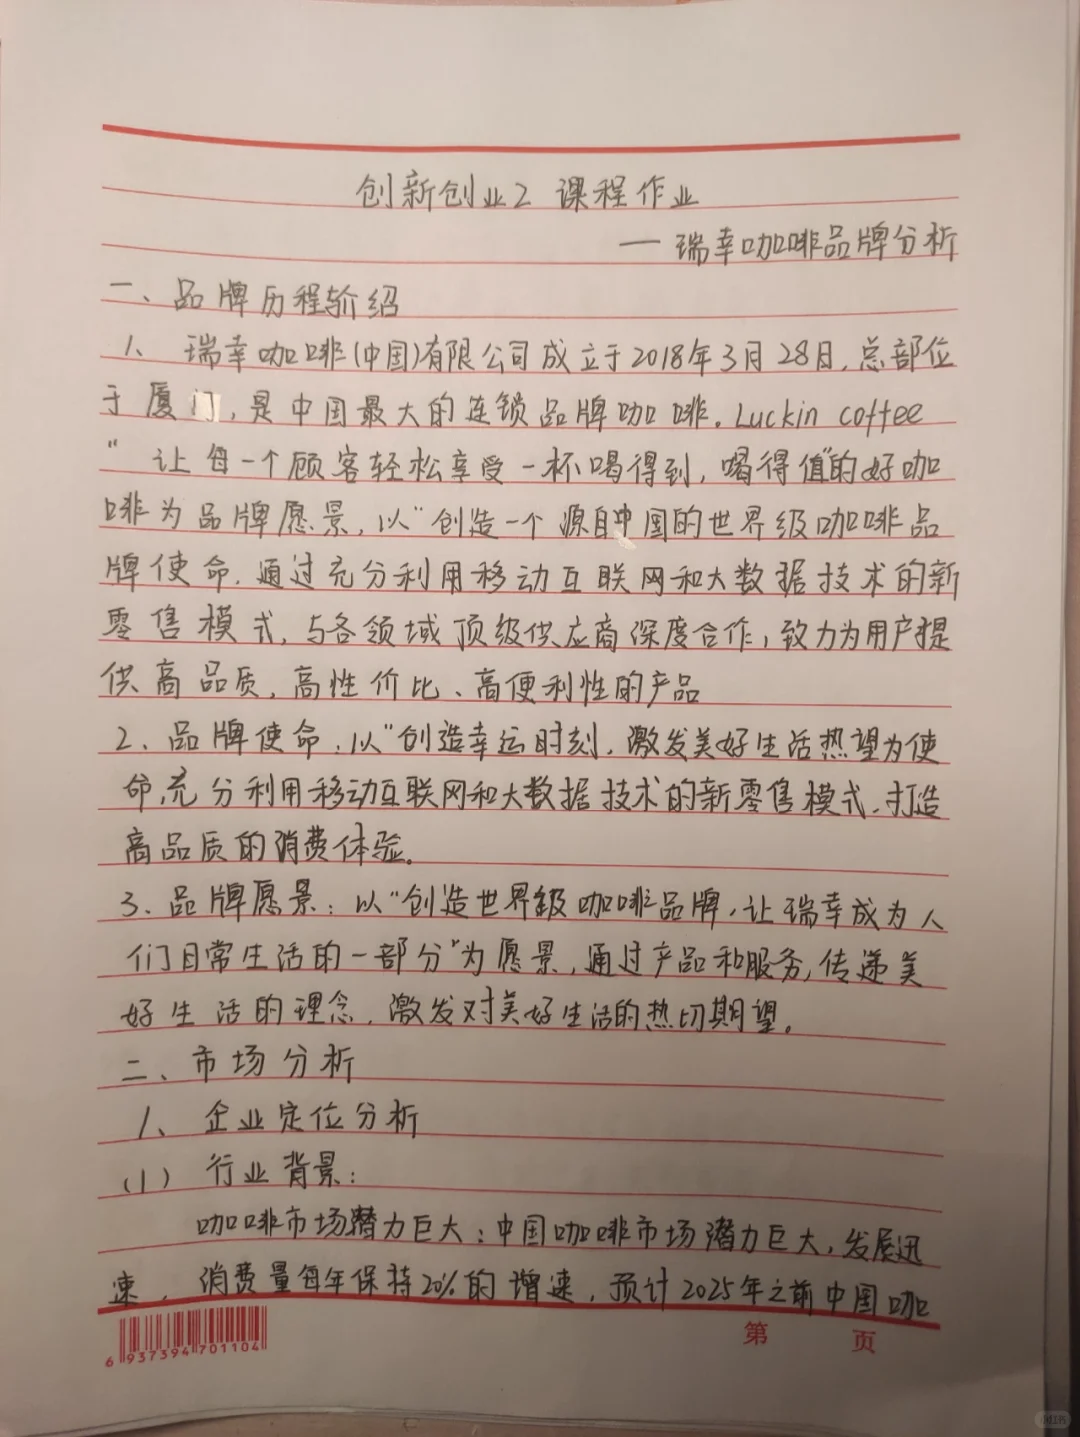 创新创业2 课程作业
— 瑞幸咖啡品牌分析
一、品牌历程介绍
1、瑞幸咖啡(中国)有限公司成立于2018年3月28日,总部位
于厦门,是中国最大的连锁品牌咖啡。Luckin coffee
“让每一个顾客轻松享受一杯喝得到,喝得值”的好咖
啡为品牌愿景,以“创造一个源自中国的世界级咖啡品
牌使命,通过充分利用移动互联网和大数据技术的新
零售模式,与各领域顶级供应商深度合作,致力为用户提
供高品质,高性价比、高便利性的产品
2、品牌使命:以“创造幸运时刻,激发美好生活热望为使
命,充分利用移动互联网和大数据技术的新零售模式,打造
高品质的消费体验。
3、品牌愿景:以“创造世界级咖啡品牌,让瑞幸成为人
们日常生活的一部分”为愿景,通过产品和服务,传递美
好生活的理念,激发对美好生活的热切期望。
二、市场分析
1、企业定位分析
(1) 行业背景:
咖啡市场潜力巨大:中国咖啡市场潜力巨大,发展迅
速,消费量每年保持20%的增速,预计2025年之前中国咖
第 页
6 937394 701104
小红书